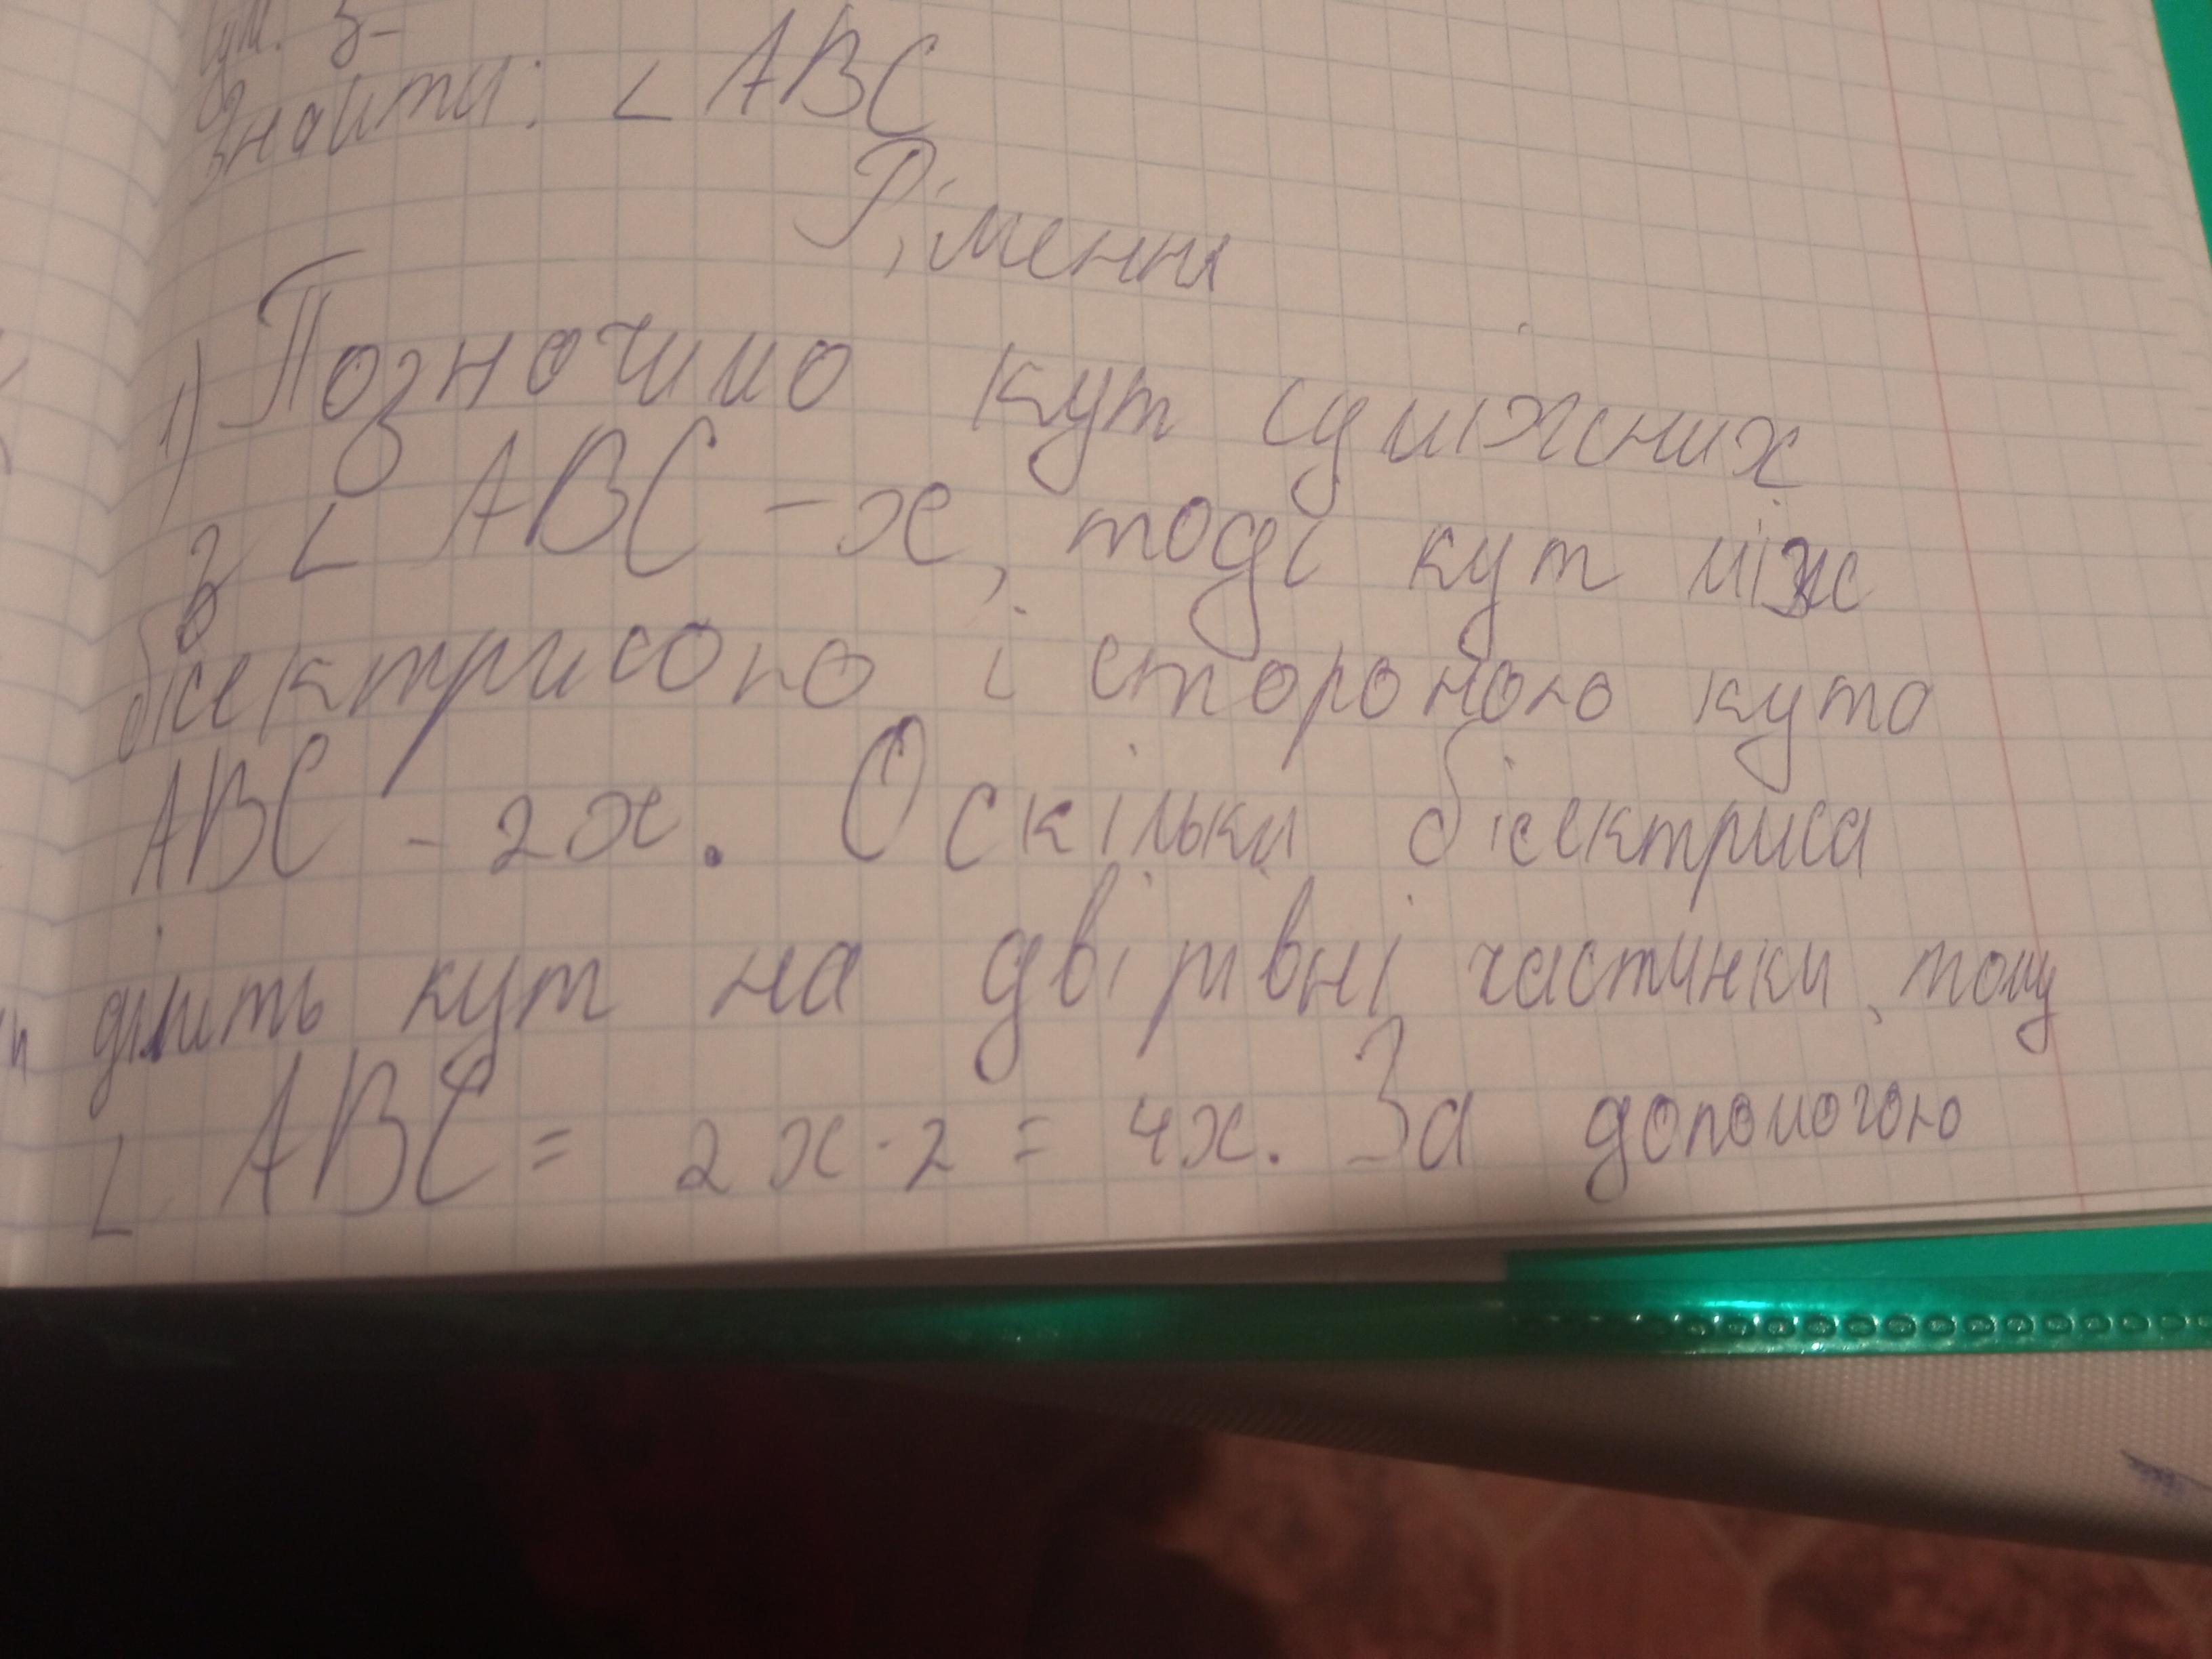 Знайти: ∠ ABC
Рішення
1) Позначимо кут суміжних
з ∠ ABC - x, тоді кут між
бісектрисою і стороною кута
ABC - 2x. Оскільки бісектриса
ділить кут на дві рівні частинки, тому
∠ ABC = 2x·2 = 4x. За допомогою